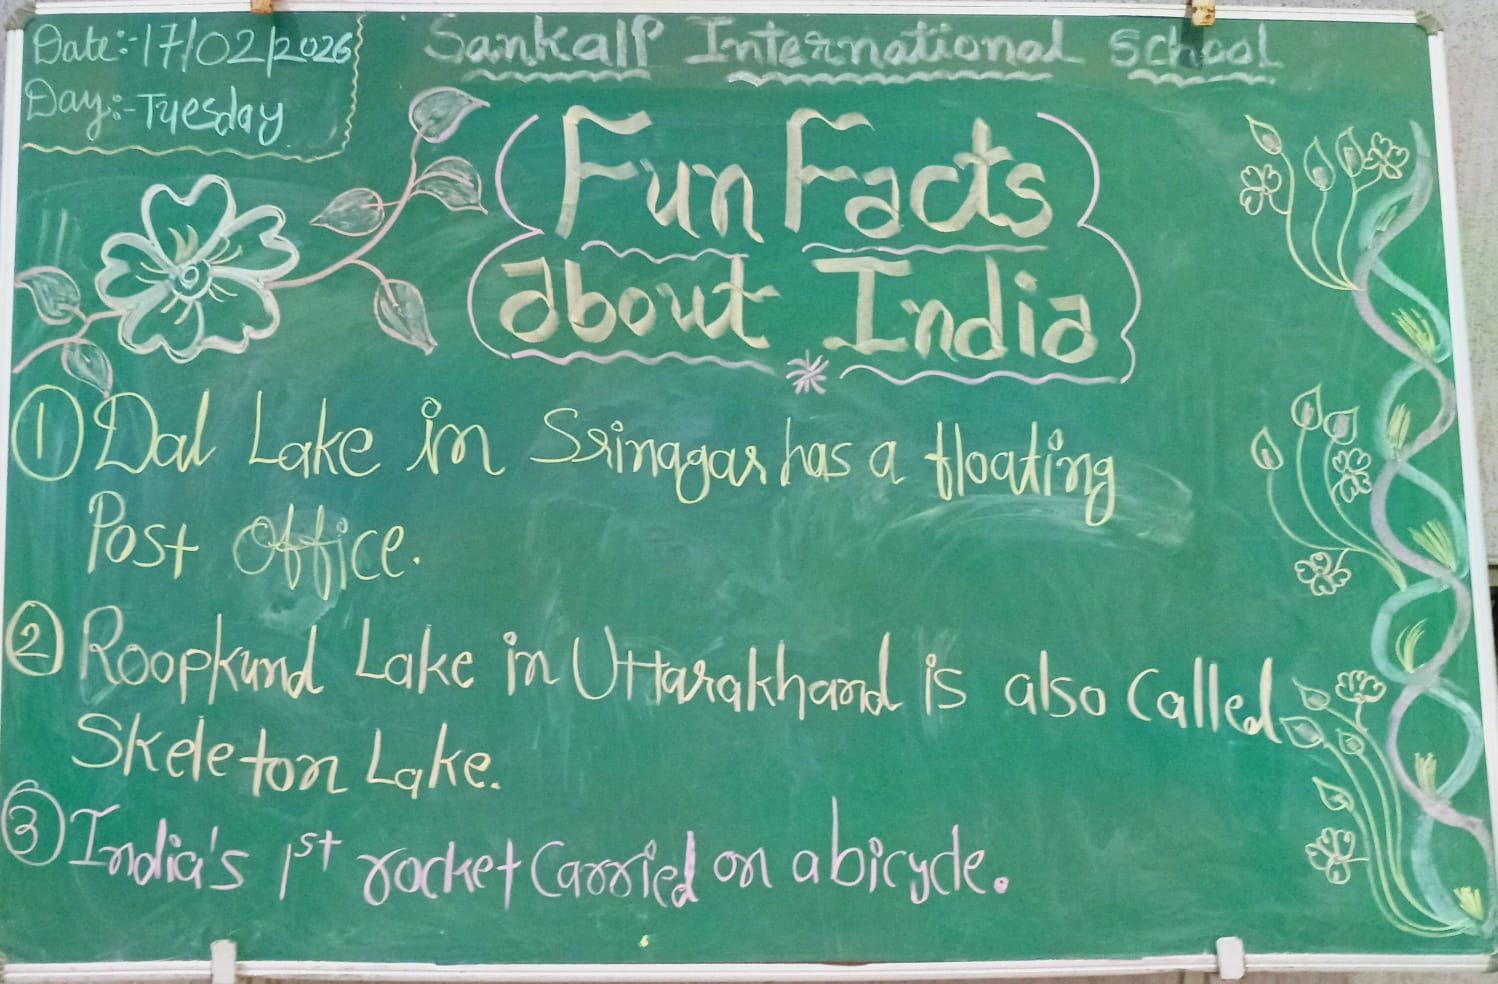 Date:-17/02/2026
Day:-Tuesday
Sankalp International School
Fun Facts
about India
① Dal Lake in Srinagar has a floating
Post Office.
② Roopkund Lake in Uttarakhand is also Called
Skeleton Lake.
③ India's 1st rocket Carried on a bicycle.